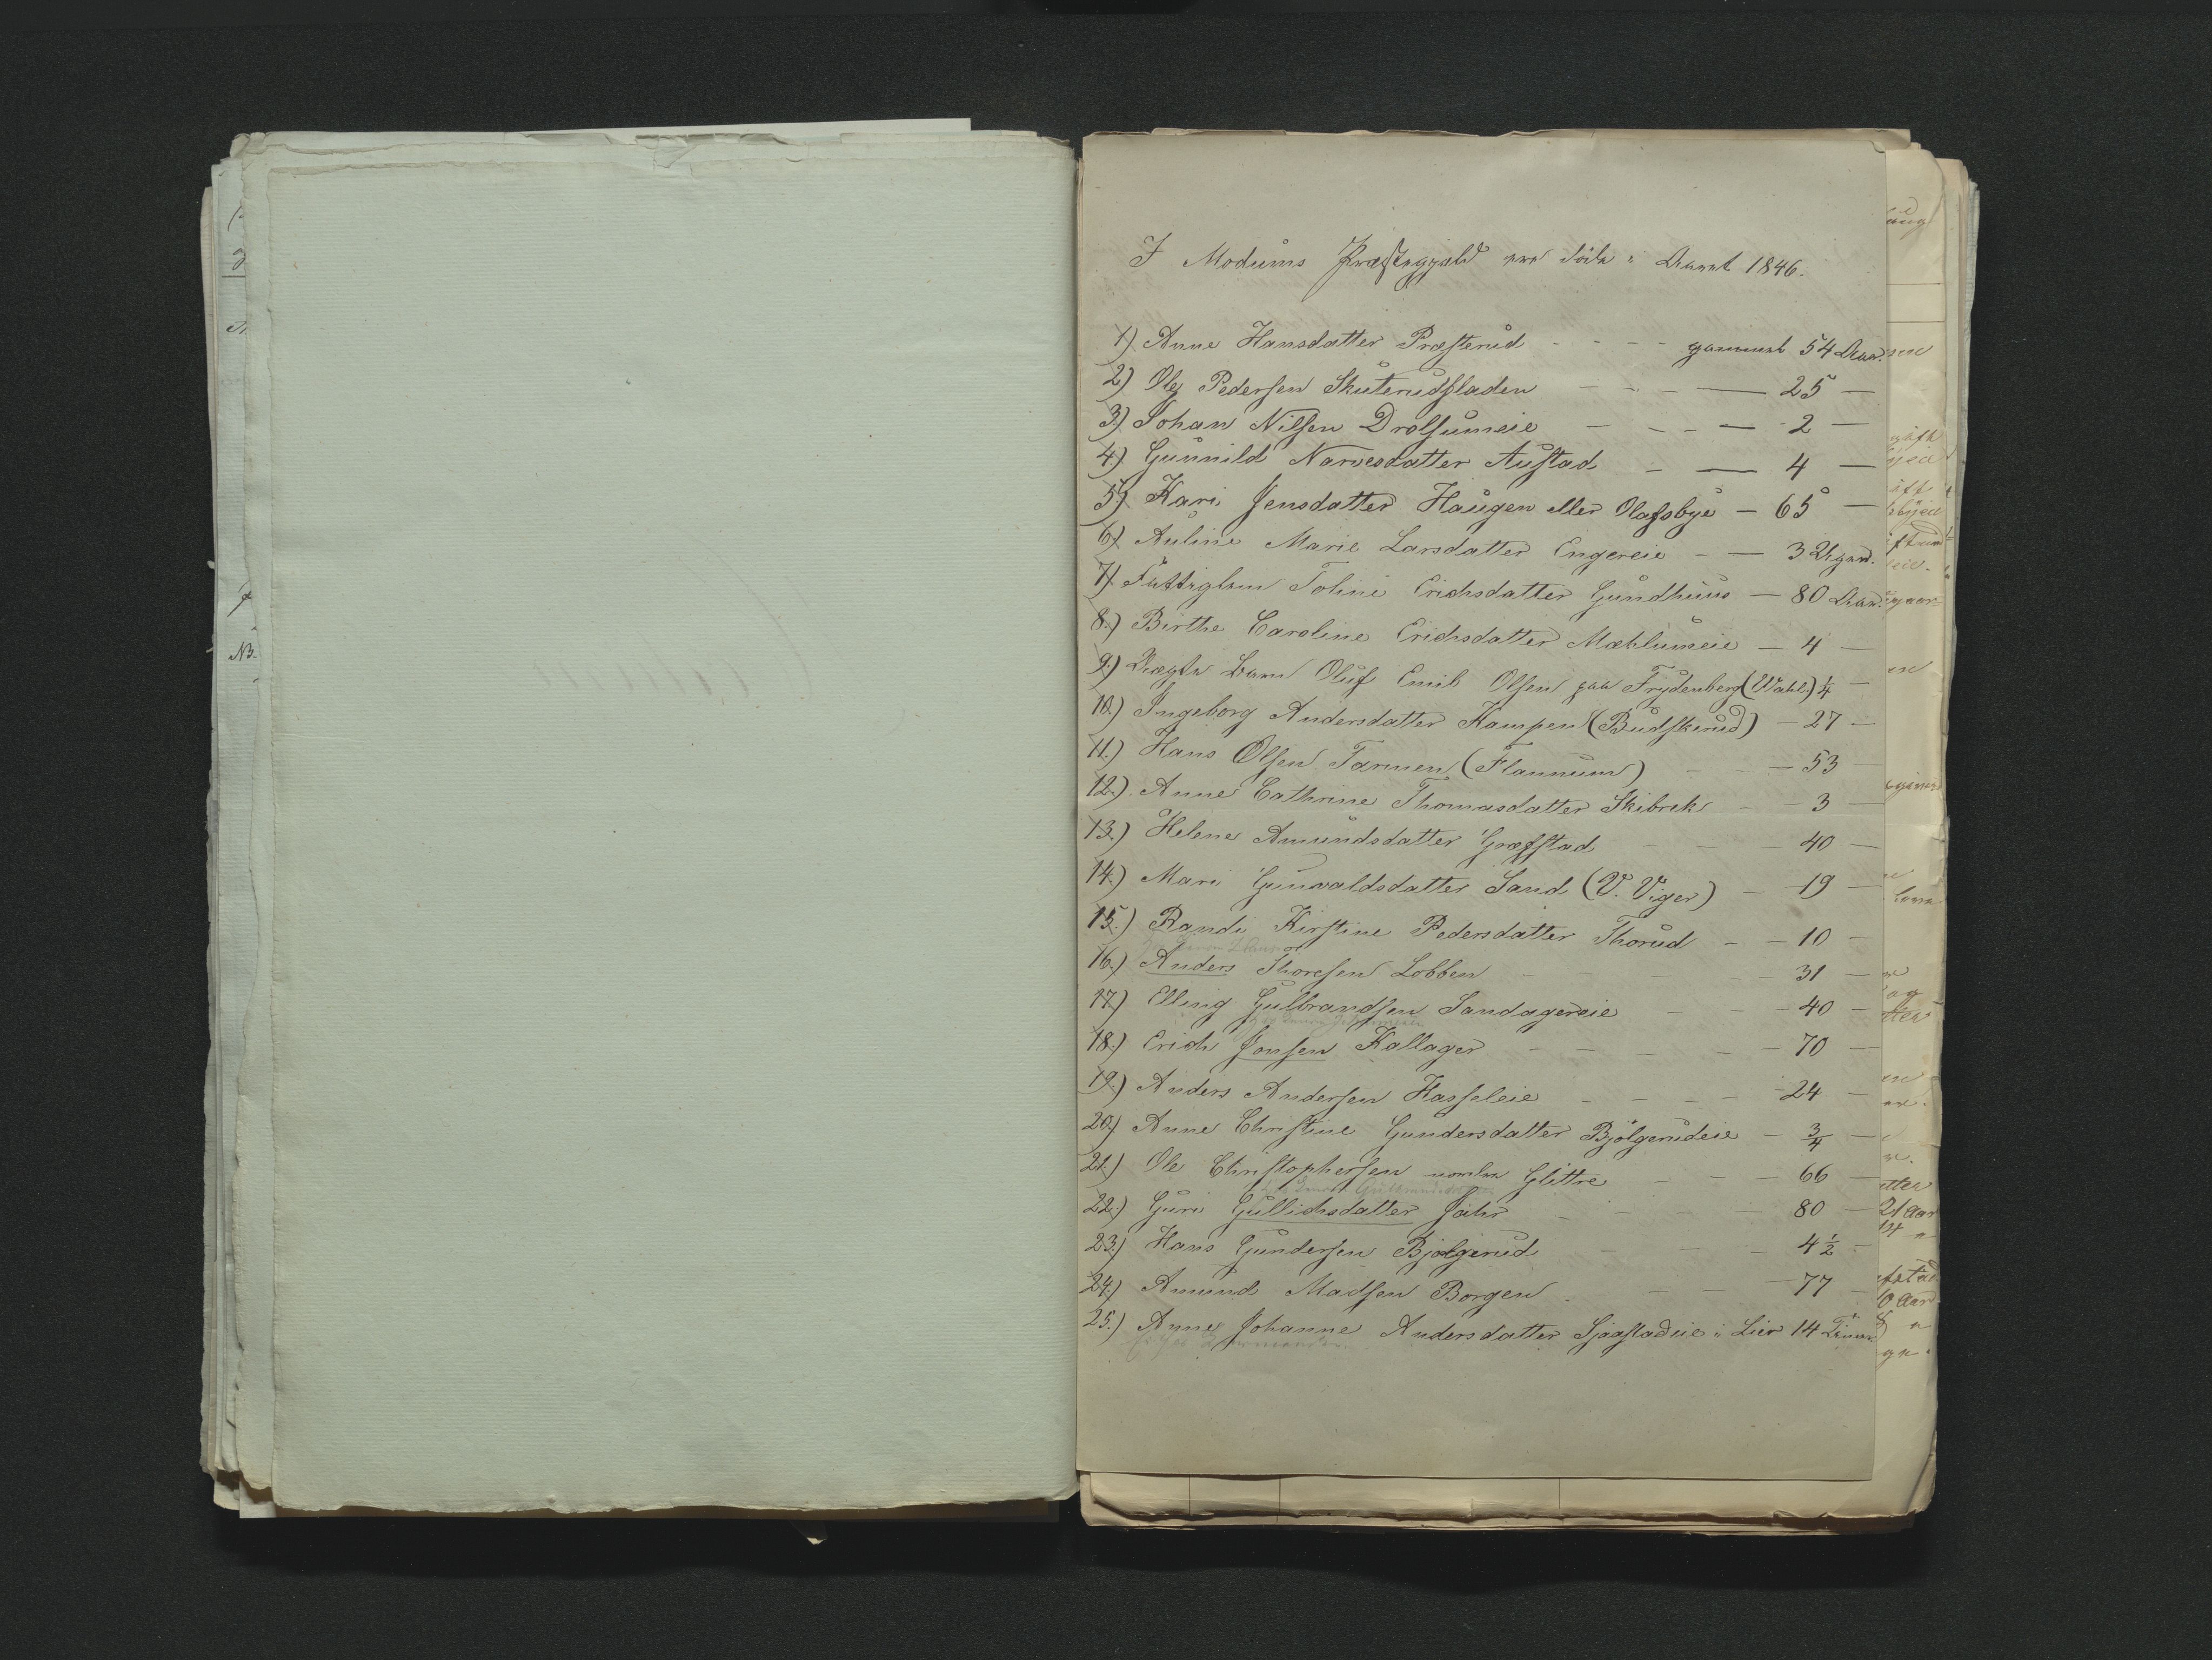 I Modums Præstegjeld ere døde i Aaret 1846.
1) Anne Hansdatter Præsterud - - - - gammel 54 Aar.
2) Ole Pedersen Skuterudfladen - - - — 25 —
3) Johan Nilsen Drolsumeie - - - — 2 —
4) Gunnild Narvesdatter Austad - — 4 —
5) Kari Jensdatter Haugen eller Olafsbye - 65 —
6) Auline Marie Larsdatter Engereie - — 3 Uger.
7) Fattiglem Toline Erichsdatter Gundhuus - 80 Aar.
8) Birthe Caroline Erichsdatter Mæhlumeie - 4 —
9) Uægte Barn Oluf Emil Olsen paa Frydenberg (Wahl) ¼ —
10) Ingeborg Andersdatter Kampen (Budskerud) - 27 —
11) Hans Olsen Tarmen (Flannum) - - 53 —
12) Anne Cathrine Thomasdatter Skibrek - - 3 —
13) Helene Amundsdatter Græfstad - - 40 —
14) Mari Gunvaldsdatter Sand (V. Viger) - 19 —
15) Randi Kirstine Pedersdatter Thorud - - 10 —
16) Anders Thoresen Lobben - - 31 —
17) Elling Gulbrandsen Sandagereie - - 40 —
18) Erich Jonsen Kallager - - - - - 70 —
19) Anders Andersen Hasseleie - - - - 24 —
20) Anne Christine Gundersdatter Bjölgerudeie - ¾ —
21) Ole Christophersen nordre Glittre - - - 66 —
22) Guri Gullichsdatter Jahr - - - - 80 —
23) Hans Gundersen Bjølgerud - - - 4½ -
24) Amund Madsen Borgen - - - 77 -
25) Anne Johanne Andersdatter Sjaastadeie i Lier 14 Timer
NB.
21 Aar
14 "